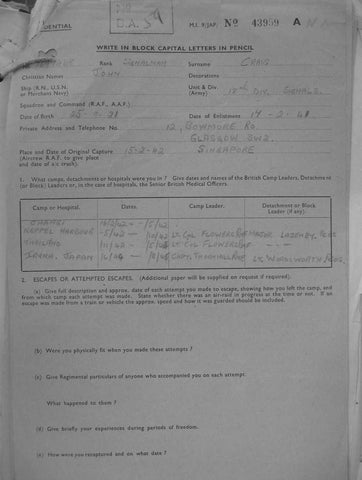 DENTIAL
D.A. 39
M.I. 9/JAP: Nº 43959 A
WRITE IN BLOCK CAPITAL LETTERS IN PENCIL
Rank SIGNALMAN Surname CRAIG
Christian Names JOHN Decorations
Ship (R.N., U.S.N. or Merchant Navy) Unit & Div. (Army) 18th DIV. SIGNALS
Squadron and Command (R.A.F., A.A.F.)
Date of Birth Date of Enlistment
Private Address and Telephone No. 12, BOWMORE RD.
GLASGOW SW2.
Place and Date of Original Capture 15-2-42 SINGAPORE
(Aircrew R.A.F. to give place
and date of a/c crash).
1. What camps, detachments or hospitals were you in ? Give dates and names of the British Camp Leaders, Detachment
(or Block) Leaders or, in the case of hospitals, the Senior British Medical Officers.
Camp or Hospital. Dates. Camp Leader. Detachment or Block Leader (if any).
CHANGI
KEPPEL HARBOUR LT. COL FLOWERS MAJOR
THAILAND LT. COL FLOWERS
JAPAN CAPT. LT. WORDSWORTH
2. ESCAPES OR ATTEMPTED ESCAPES. (Additional paper will be supplied on request if required).
(a) Give full description and approx. date of each attempt you made to escape, showing how you left the camp, and
from which camp each attempt was made. State whether there was an air-raid in progress at the time or not. If an
escape was made from a train or vehicle the approx. speed and how it was guarded should be included.
(b) Were you physically fit when you made these attempts ?
(c) Give Regimental particulars of anyone who accompanied you on each attempt.
What happened to them ?
(d) Give briefly your experiences during periods of freedom.
(e) How were you recaptured and on what date ?